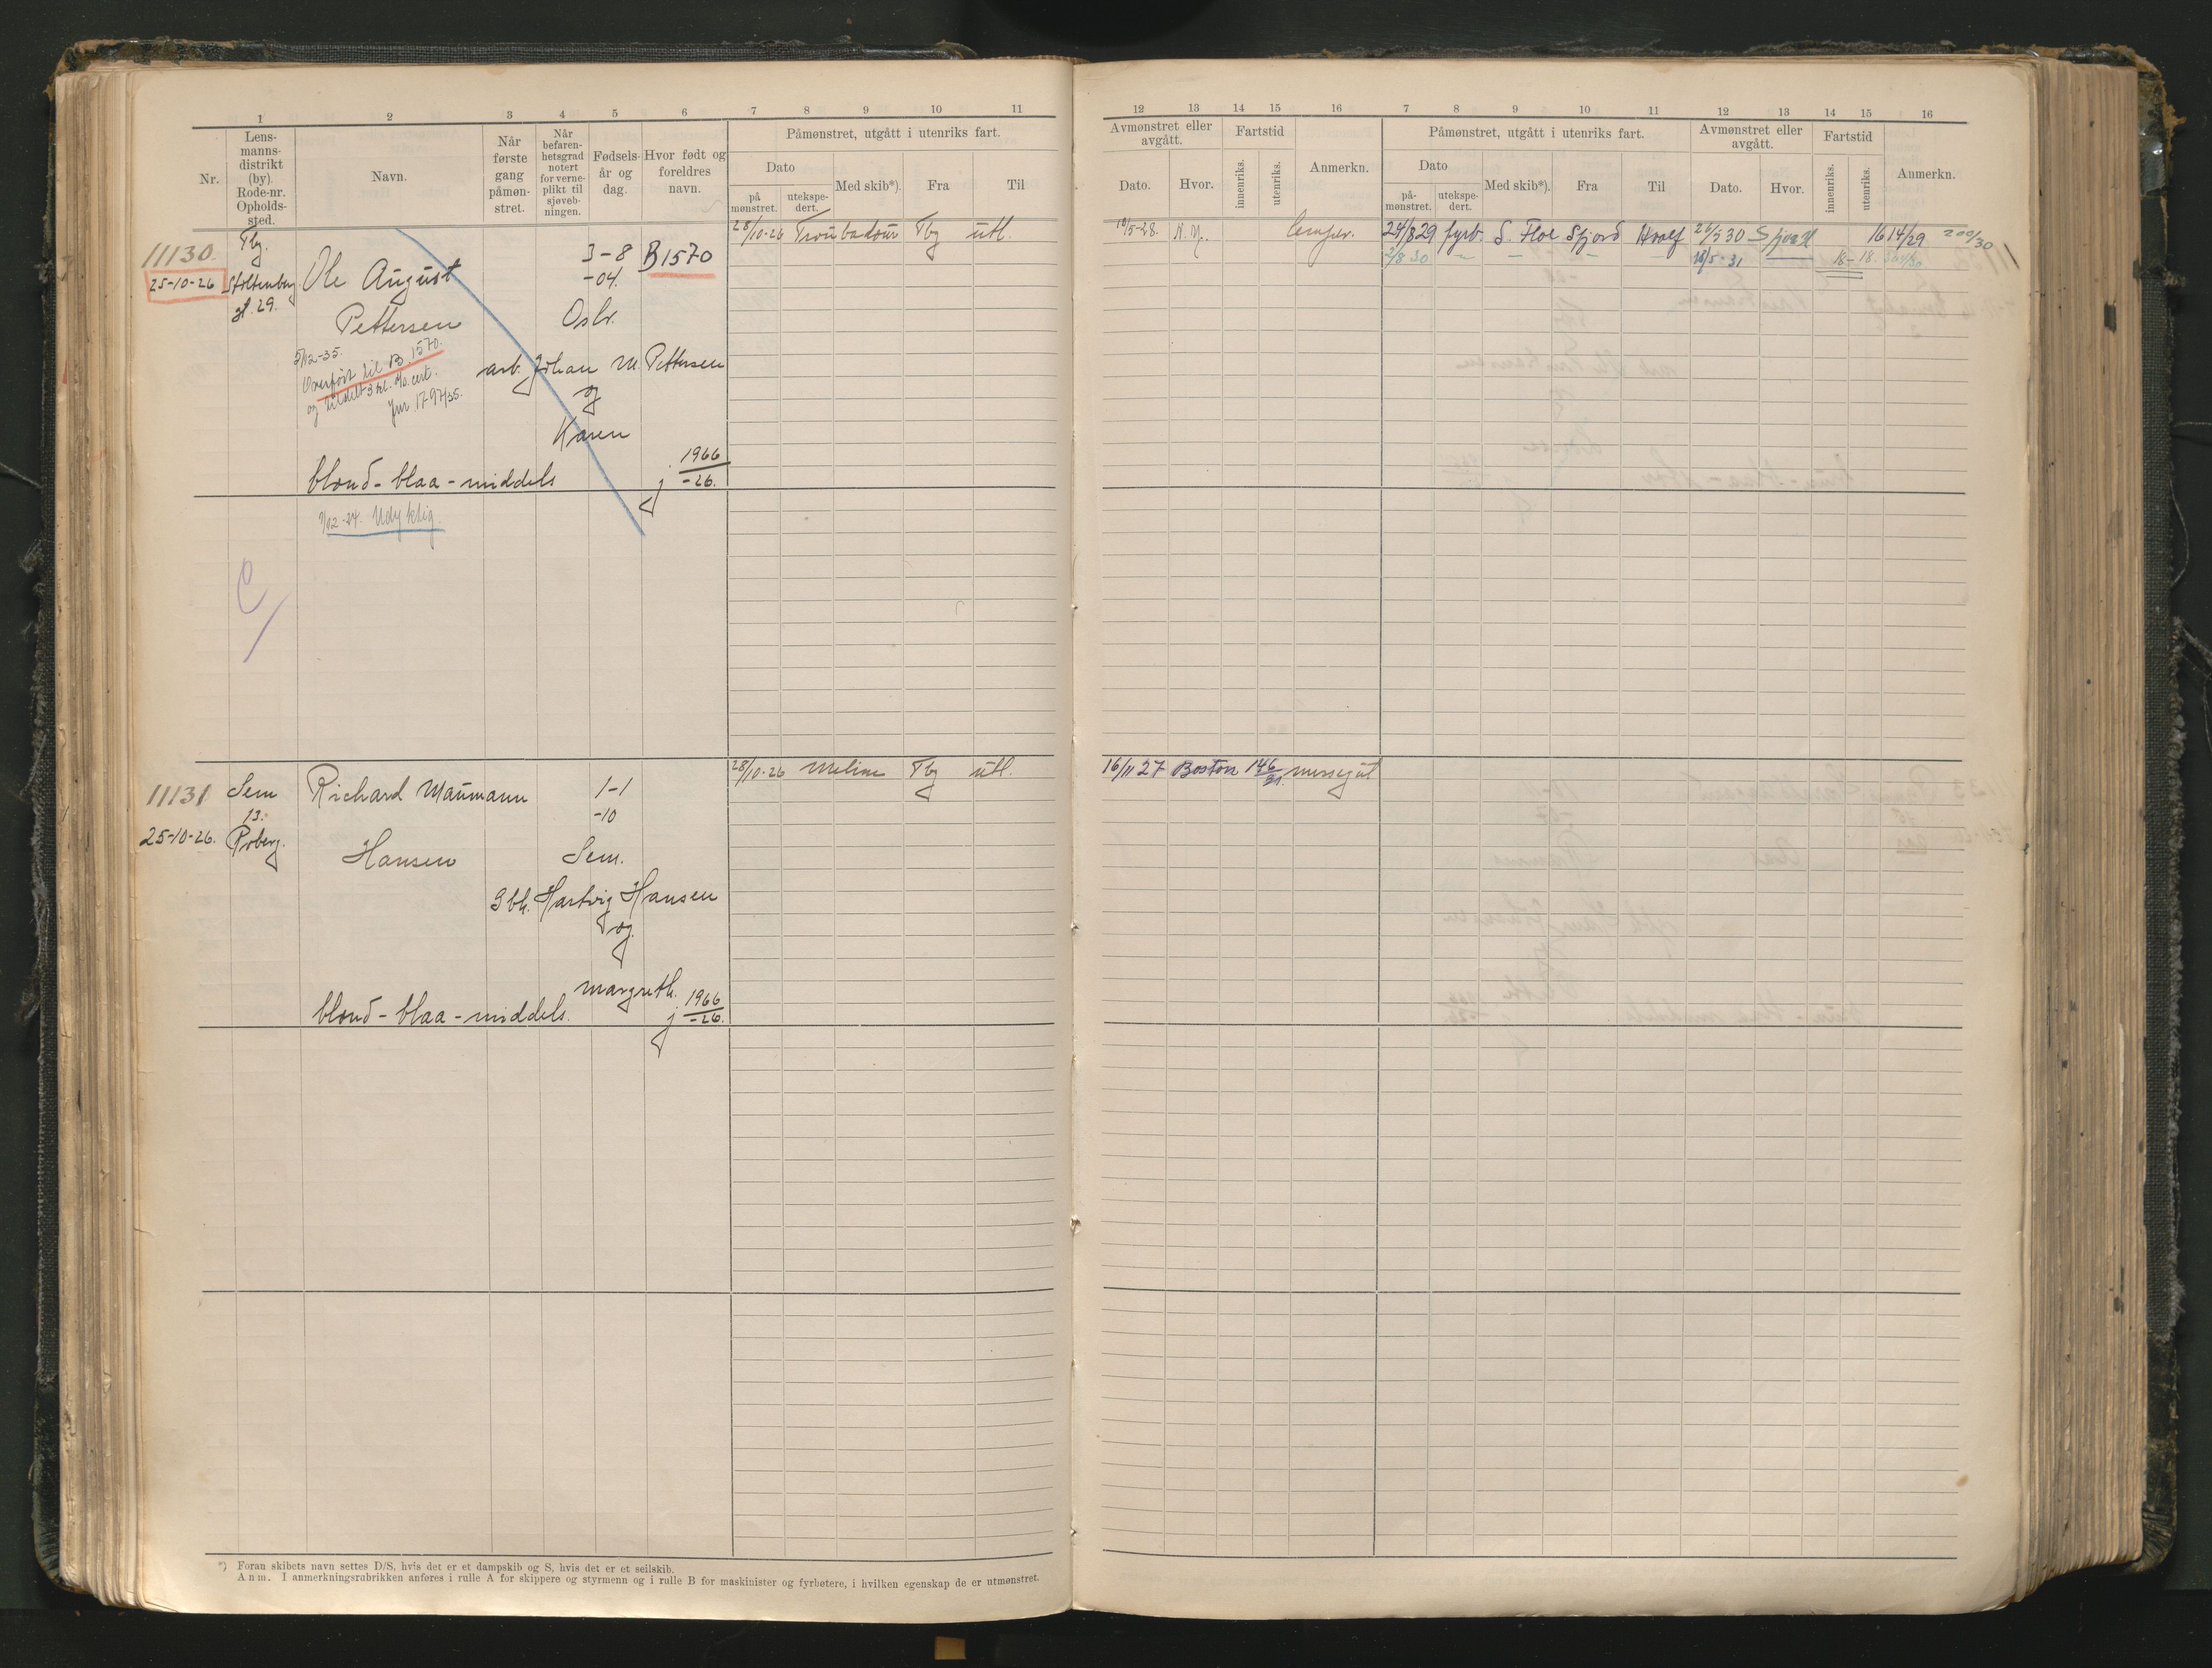 1 2 3 4 5 6 7 8 9 10 11
Nr.
Lens-
manns-
distrikt
(by).
Rode-nr.
Opholds-
sted.
Navn.
Når
første
gang
påmøn-
stret.
Når
befaren-
hetsgrad
notert
for verne-
plikt til
sjøveb-
ningen.
Fødsels-
år og
dag.
Hvor født og
foreldres
navn.
Påmønstret, utgått i utenriks fart.
Dato
på
mønstret.
utekspe-
dert.
Med skib*).
Fra
Til
11130. Tbg.
25-10-26 Stoltenberg
gt. 29.
Ole August
Pettersen
3-8
-04.
B1570
Oslo.
arb. Johan M. Pettersen
og
Karen
5/12-35.
Overført til B 1570.
og tildelt 3 kl. cert.
Jnr. 1797/35.
blond - blaa - middels j 1966
-26.
28/10-26 Troubadour Tbg utl.
1/12-24. Udyktig.
11131 Sem
13.
25-10-26. Roberg.
Richard Maumann
Hansen
1-1
-10
Sem.
Gbr. Hartvig Hansen
og
Margreth.
blond - blaa - middels. j 1966
-26.
28/10-26 Meline Tbg utl.
*) Foran skibets navn settes D/S, hvis det er et dampskib og S, hvis det er et seilskib.
Anm. I anmerkningsrubrikken anføres i rulle A for skippere og styrmenn og i rulle B for maskinister og fyrbøtere, i hvilken egenskap de er utmønstret.
12 13 14 15 16 7 8 9 10 11 12 13 14 15 16
Avmønstret eller
avgått.
Dato.
Hvor.
Fartstid
innenriks.
utenriks.
Anmerkn.
Påmønstret, utgått i utenriks fart.
Dato
på-
mønstret.
utekspe-
dert.
Med skib*).
Fra
Til
Avmønstret eller
avgått.
Dato.
Hvor.
Fartstid
innenriks.
utenriks.
Anmerkn.
N.Y. 24/8 29 fyrb. S. Floe Sfjord Hvalf 26/5 30 1614/29 200/30
2/8 30 — — — — 18/5-31 18-18.
16/11 27 Boston messegut